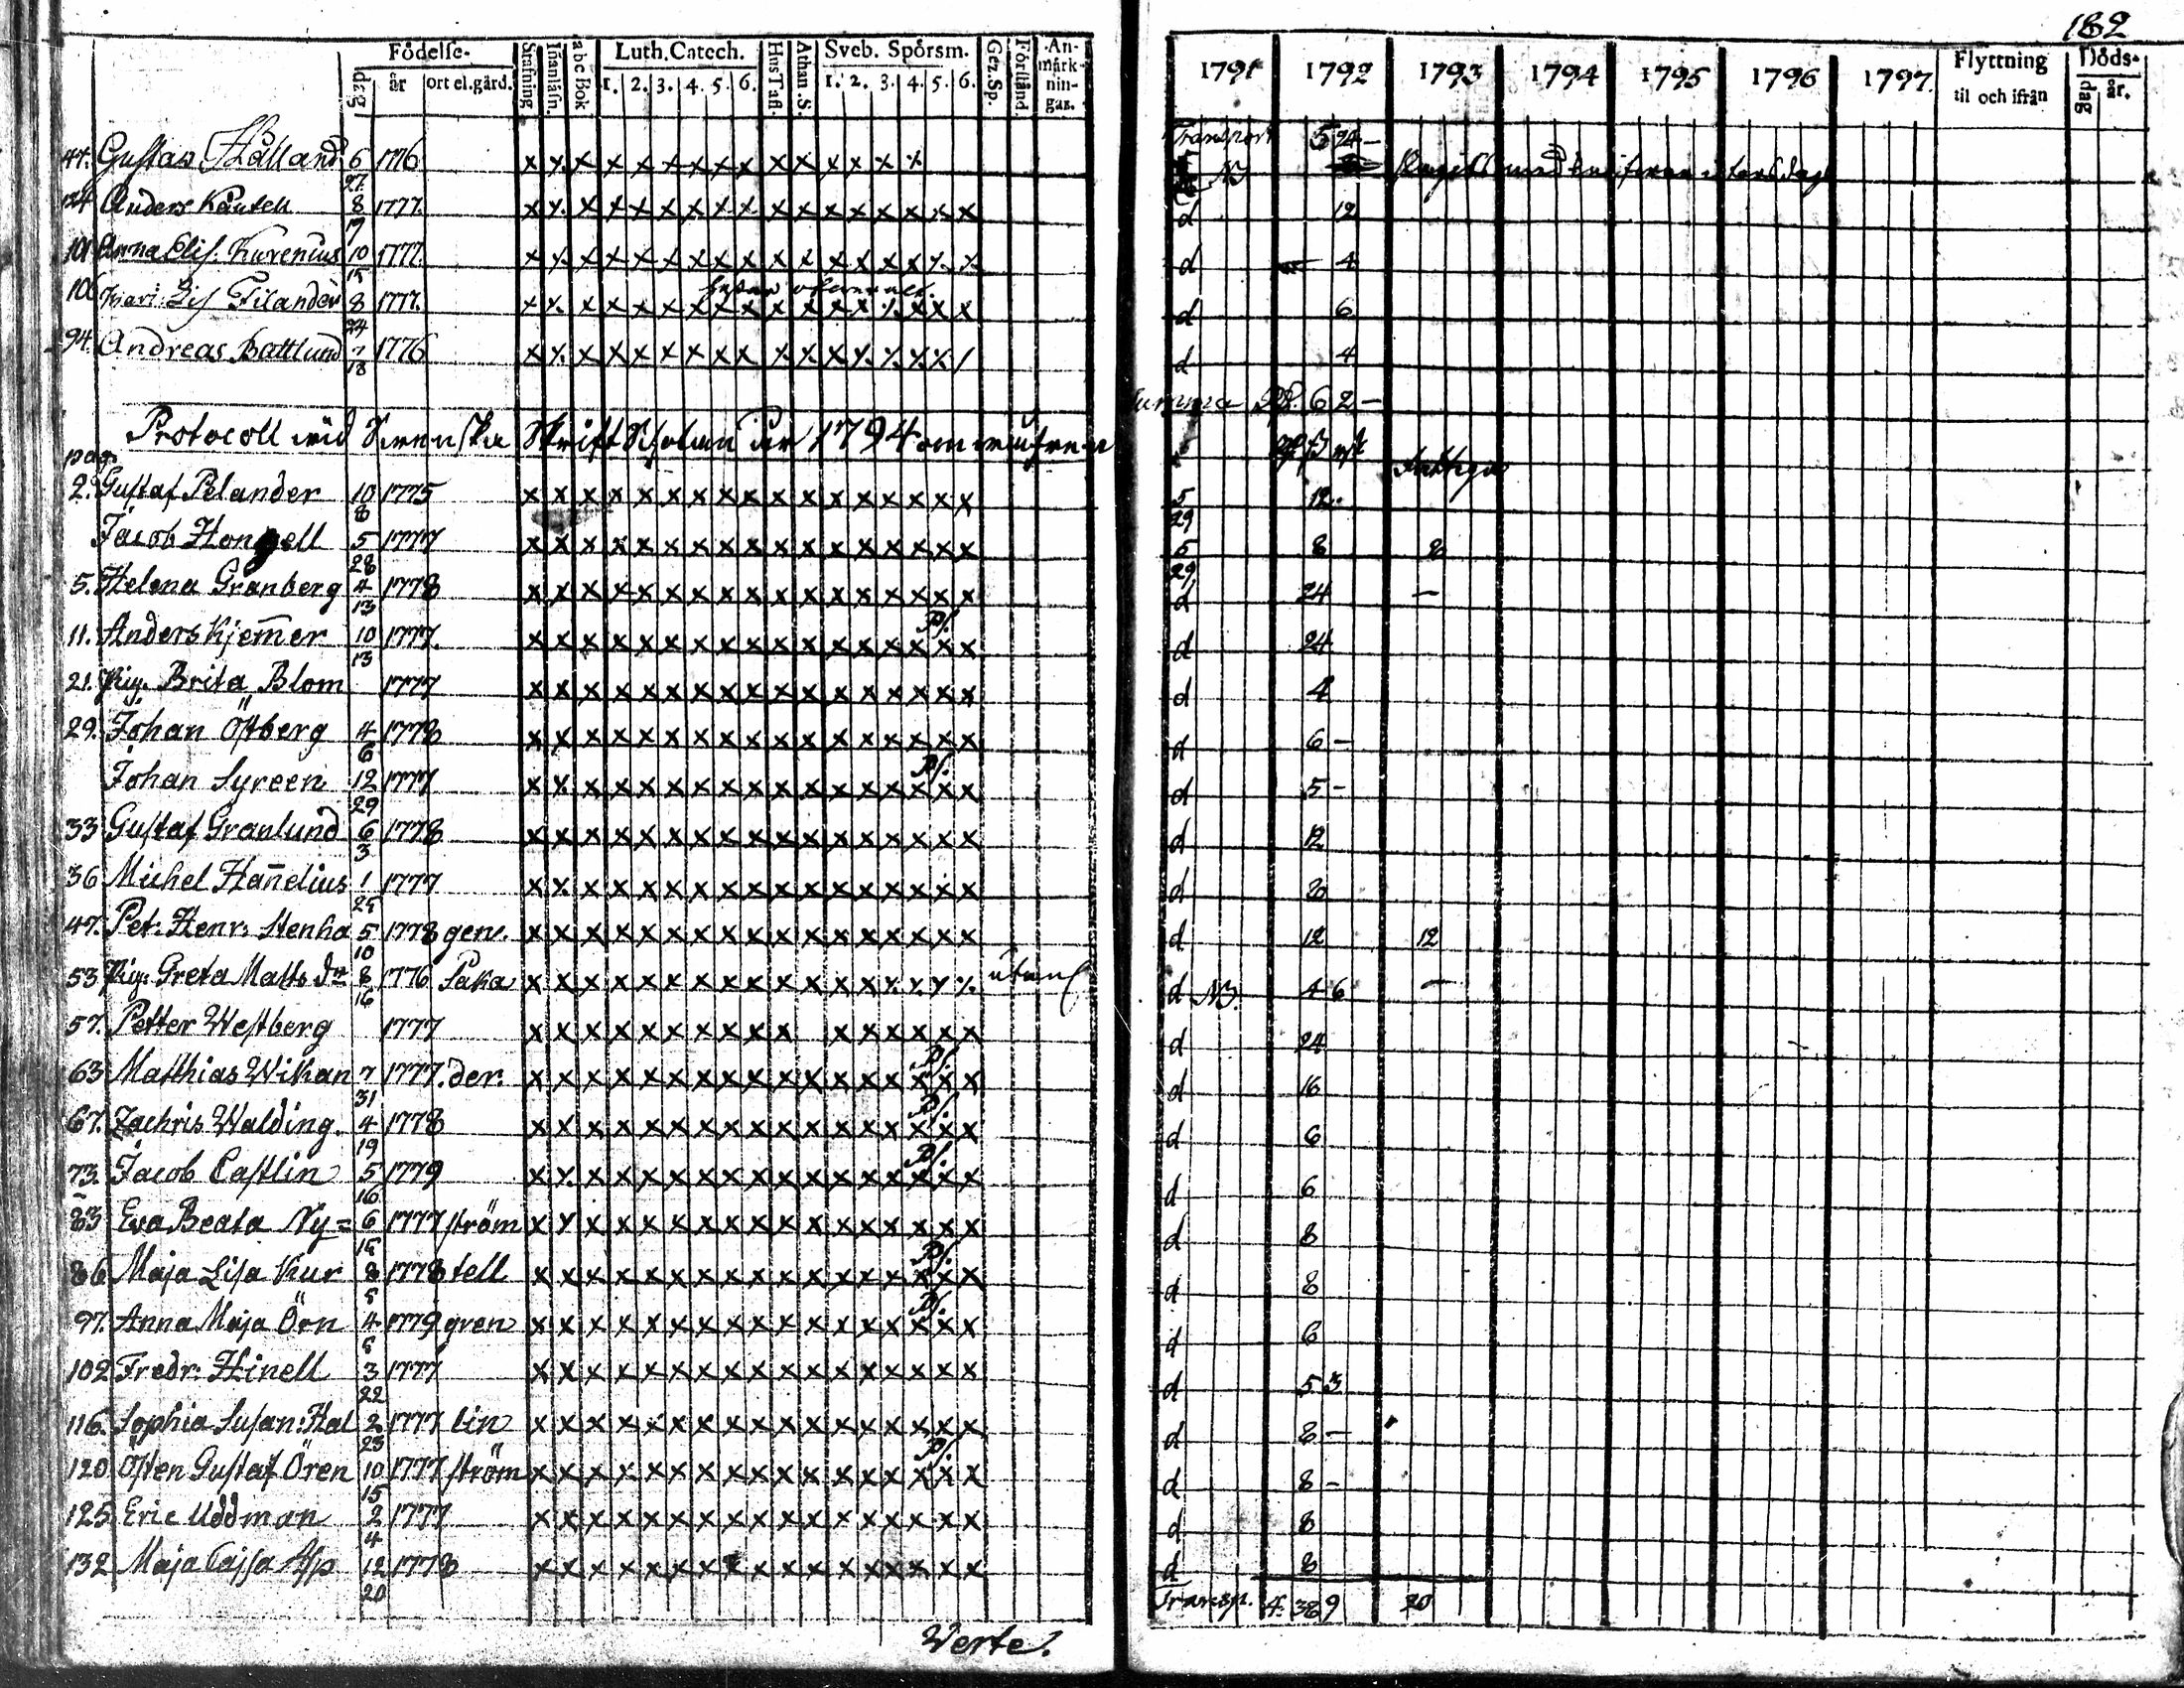 182
Födelse-
dag år ort el. gård.
Stafning
Inanläsn.
abc Bok
Luth. Catech.
1. 2. 3. 4. 5. 6.
Hus Tafl.
Athan. S.
Sveb. Spörsm.
1. 2. 3. 4. 5. 6.
Gez. Sp.
Förstånd.
An-
märk-
nin-
gar.
1791 1792 1793 1794 1795 1796 1797.
Flyttning
til och ifrån
Döds-
dag år.
Transport 5 24 –
44. Gustav Hålland 6/27 1776 x x x x x x x x x x x x x x x NB
124 Anders Kåntell 8/17 1777. x x x x x x x x x x x x x x x x x d 12
101 Anna Elis. Kurenius 10/15 1777. x x x x x x x x x x x x x x x x x d 4
106 Lis Filander 8/24 1777. x x x x x x x x x x x x x x x x x d 6
94. Andreas Battlund 7/18 1776 x x x x x x x x x x x x x x x x / d 4
Summa 6 2 –
Protocoll wid Swenska Skrift Scholan 1794
pag.
2. Gustaf Pelander 10/8 1775 x x x x x x x x x x x x x x x x x 5/29 12.
Jacob Hongell 5/28 1777 x x x x x x x x x x x x x x x x x 5/29 8 8
5. Helena Granberg 4/13 1778 x x x x x x x x x x x x x x x x x d 24 –
11. Anders Kjem̄er 10/13 1777. x x x x x x x x x x x x x x x x x d 24
21. Pig. Brita Blom 1777 x x x x x x x x x x x x x x x x x d 4
29. Johan Östberg 4/6 1778 x x x x x x x x x x x x x x x x x d 6 –
Johan Syreen 12/29 1777 x x x x x x x x x x x x x x x x x d 5 –
33 Gustaf Granlund 6/3 1778 x x x x x x x x x x x x x x x x x d 12
36 Michel Han̄elius 1/25 1777 x x x x x x x x x x x x x x x x x d 20
47. Pet. Henr. Stenha 5/10 1778 gen. x x x x x x x x x x x x x x x x x d 12 12
53 Pig. Greta Matts dr 8/16 1776 Paka x x x x x x x x x x x x x x x x x utan d NB. 4 6 –
57. Petter Westberg 1777 x x x x x x x x x x x x x x x x d 24
63 Matthias Wikan 7/31 1777. der. x x x x x x x x x x x x x x x x x d 16
67. Zachris Walding. 4/19 1778 x x x x x x x x x x x x x x x x x d 6
73. Jacob Castlin 5/16 1779 x x x x x x x x x x x x x x x x x d 6
83 Eva Beata Ny= 6/15 1777 ström x x x x x x x x x x x x x x x x x d 8
86 Maja Lisa Kur 8/8 1778 tell x x x x x x x x x x x x x x x x x d 8
97. Anna Maja Örn 4/8 1779 gren x x x x x x x x x x x x x x x x x d 6
102 Fredr: Hinell 3/22 1777 x x x x x x x x x x x x x x x x x d 5 3
116. Sophia Susan: Hal 2/23 1777 lin x x x x x x x x x x x x x x x x x d 8 –
120 Östen Gustaf Ören 10/15 1777 ström x x x x x x x x x x x x x x x x x d 8 –
125 Eric Uddman 2/4 1777 x x x x x x x x x x x x x x x x x d 8
132 Maja Cajsa Asp 12/20 1778 x x x x x x x x x x x x x x x x x d 8
Transp. 4. 38 9 20
Werte.